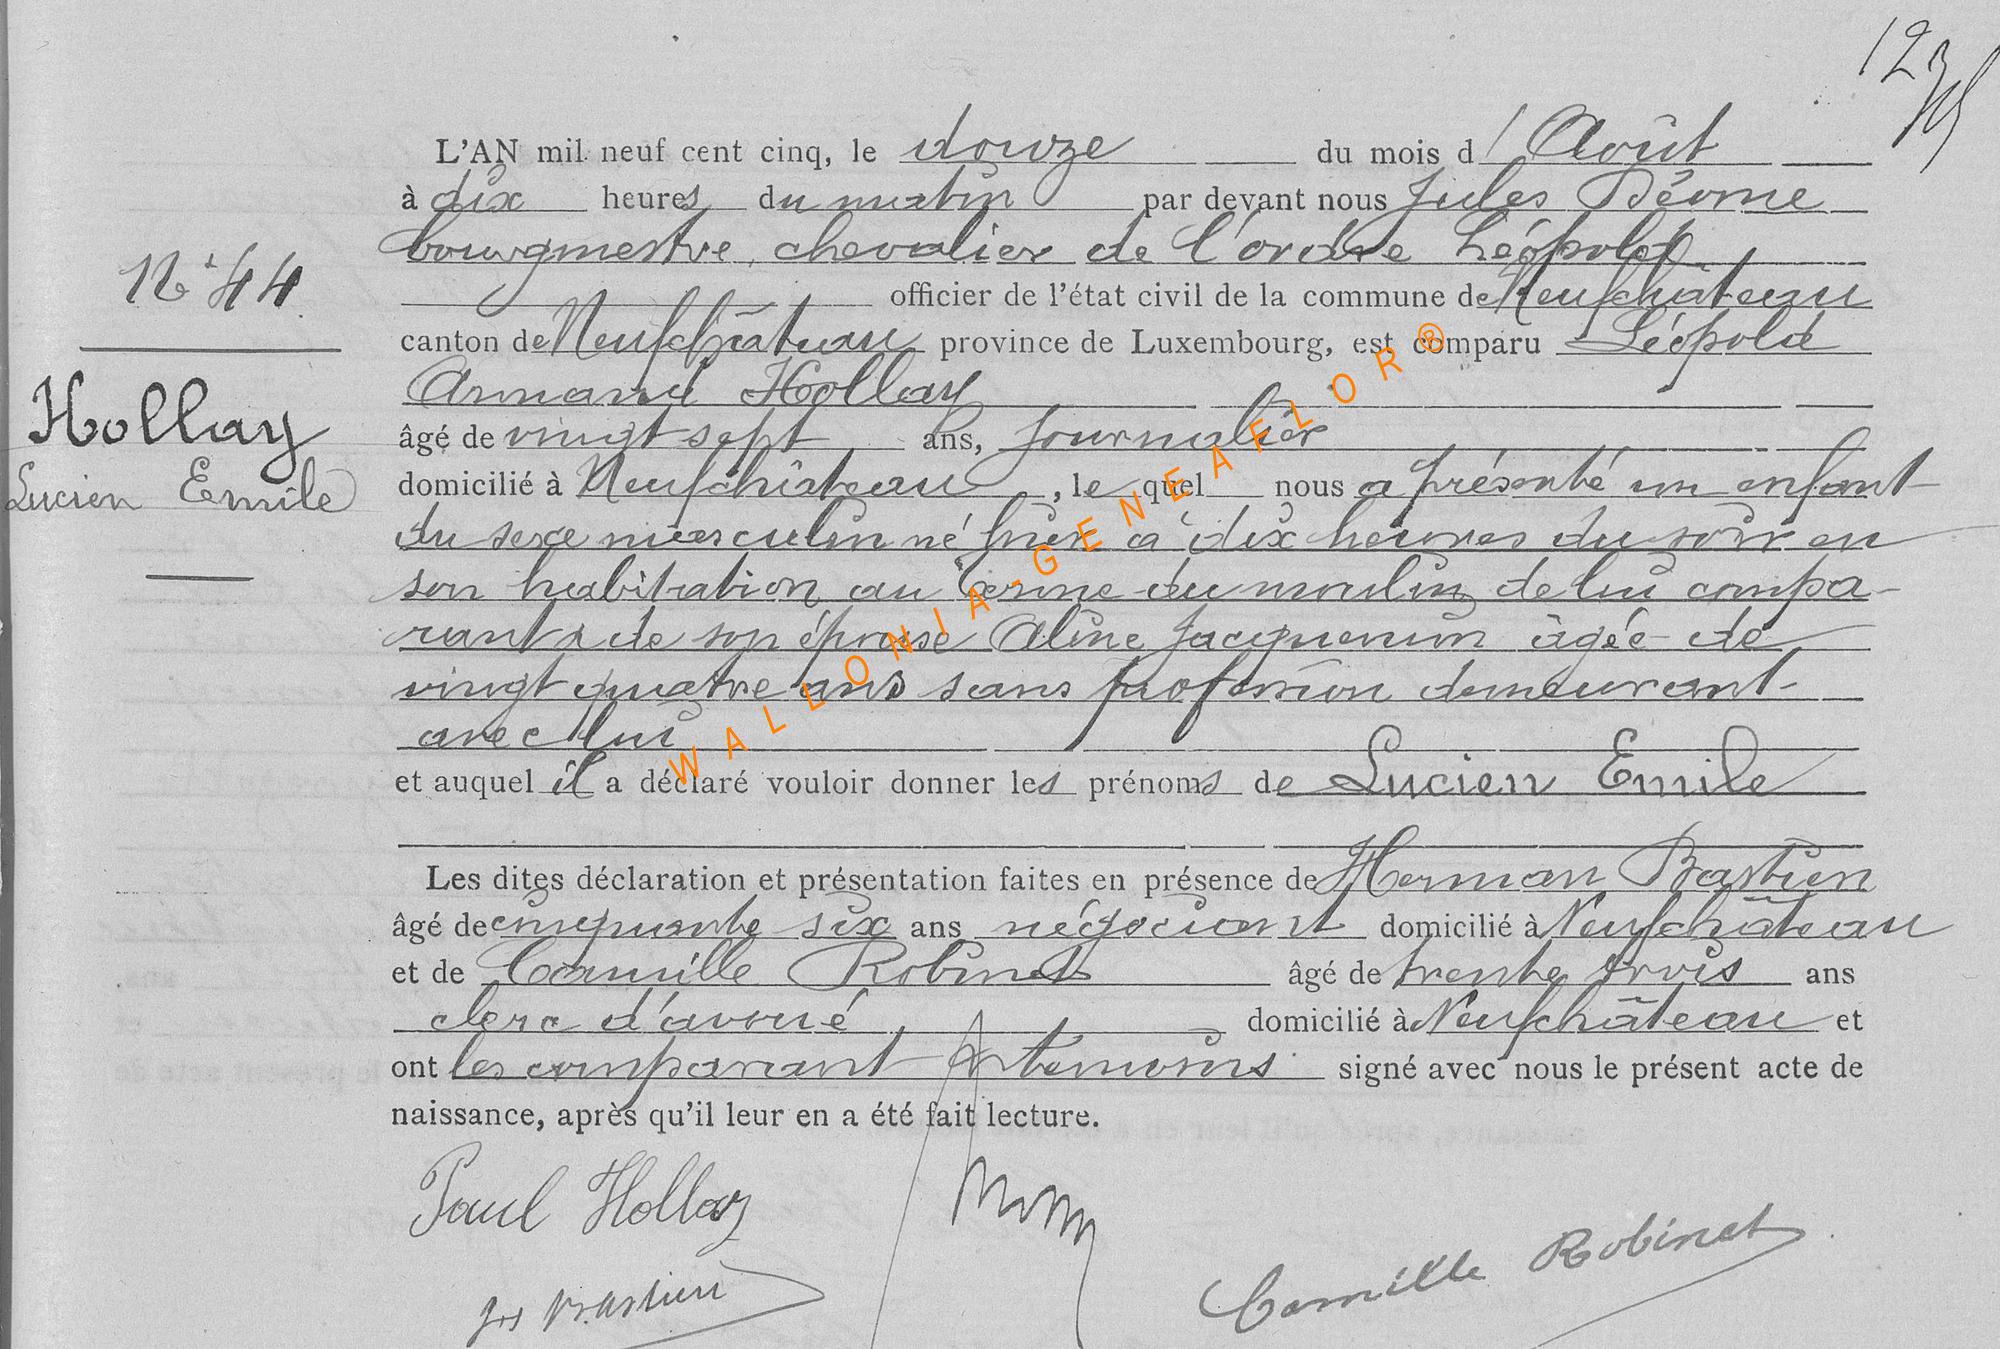 123
L'AN mil neuf cent cinq, le douze du mois d'Août
à dix heures du matin par devant nous Jules
bourgmestre, chevalier de l'ordre Léopold
officier de l'état civil de la commune de Neufchâteau
canton de Neufchâteau province de Luxembourg, est comparu Léopold
Armand Hollay
âgé de vingt sept ans, journalier
domicilié à Neufchâteau, le quel nous a présenté un enfant
du sexe masculin né hier à dix heures du soir en
son habitation au du moulin de lui compa-
rant & de son épouse Aline Jacquemin âgée de
vingt quatre ans sans profession demeurant
avec lui
et auquel il a déclaré vouloir donner les prénoms de Lucien Emile
Les dites déclaration et présentation faites en présence de Herman Bastien
âgé de cinquante six ans négociant domicilié à Neufchâteau
et de Camille Robinet âgé de trente trois ans
clerc d'avoué, domicilié à Neufchâteau et
ont les comparant & témoins signé avec nous le présent acte de
naissance, après qu'il leur en a été fait lecture.
N° 44
Hollay
Lucien Emile
Paul Hollay
Bastien
Camille Robinet
WALLONIA-GENEAFLOR®